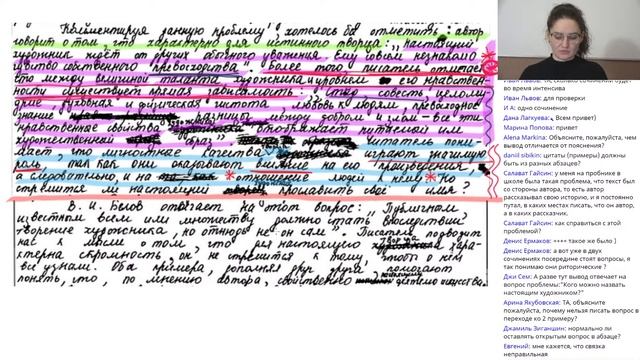 Комментируя данную проблему, хотелось бы отметить: автор
говорит о том, что характерно для истинного творца: "настоящий
художник ждёт от других обязательного уважения. Ему совсем незнакомо
чувство собственного превосходства". Более того писатель отмечает,
что между величиной таланта художника и уровнем его нравствен-
ности существует прямая зависимость: совесть, целому-
дрие, духовная и физическая чистота, любовь к людям, превосходное
знание разницы между добром и злом - все эти
нравственные свойства
художественный образ". читатель пони-
мает, что личностные качества играют значимую
роль, так как они оказывают влияние на его произведения,
а следовательно, и на отношение людей к нему. Но
стремится ли настоящий прославить своё имя?
В. И. Белов отвечает на этот вопрос: "Публичным и
известным всем или множеству должно стать впоследствии
творение художника, но отнюдь не он сам". Писатель подводит
нас к мысли о том, что для настоящего творца хара-
ктерна скромность, он не стремится к тому, чтобы о нём
все узнали. Оба примера, дополняя друг друга, помогают
понять, что, по мнению автора, свойственно настоящему деятелю искусства.
во время интенсива
Иван Львов: для проверки
И А: одно сочинение
Дана Лагкуева: Всем привет)
Марина Попова: привет
Alena Markina: Объясните, пожалуйста, чем
вывод отличается от пояснения?
daniil sibikin: цитаты (примеры) должны
быть из разных абзацев?
Салават Гайсин: у меня на пробнике
в школе была такая проблема, что текст был
со стороны автора, то есть автор
рассказывал свою историю, и я постоянно
путал, в каких местах писать, что он автор,
а в каких рассказчик.
Салават Гайсин: как справиться с этой
проблемой?
Денис Ермаков: ++++ такое же было )
Денис Ермаков: а вот уже в двух
сочинениях посередине стоят вопросы, я
так понимаю они риторические ?
Джи Сем: А разве тут вывод отвечает на
вопрос проблемы: "Кого можно назвать
настоящим художником?"
Арина Якубовская: ТА, объясните
пожалуйста, почему нельзя писать вопрос в
переходе ко 2 примеру?
Джамиль Зиганшин: нормально ли
оставлять открытым вопрос в абзаце?
Евгений: мне кажется, что связка
неправильная